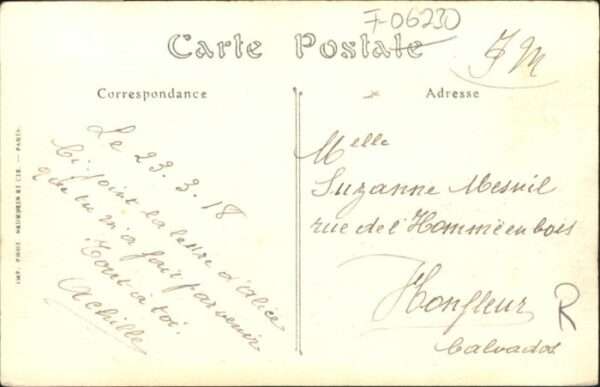 F-06230
Carte Postale
F M
Correspondance
Adresse
Le 23.3.18
Ci-joint la lettre d'Alice
que tu m'a fait parvenir
Tout à toi.
Achille
Melle
Suzanne Mesnil
rue de l'Homme en bois
Honfleur
Calvados
R
IMP. PHOT. NEURDEIN ET CIE. — PARIS.